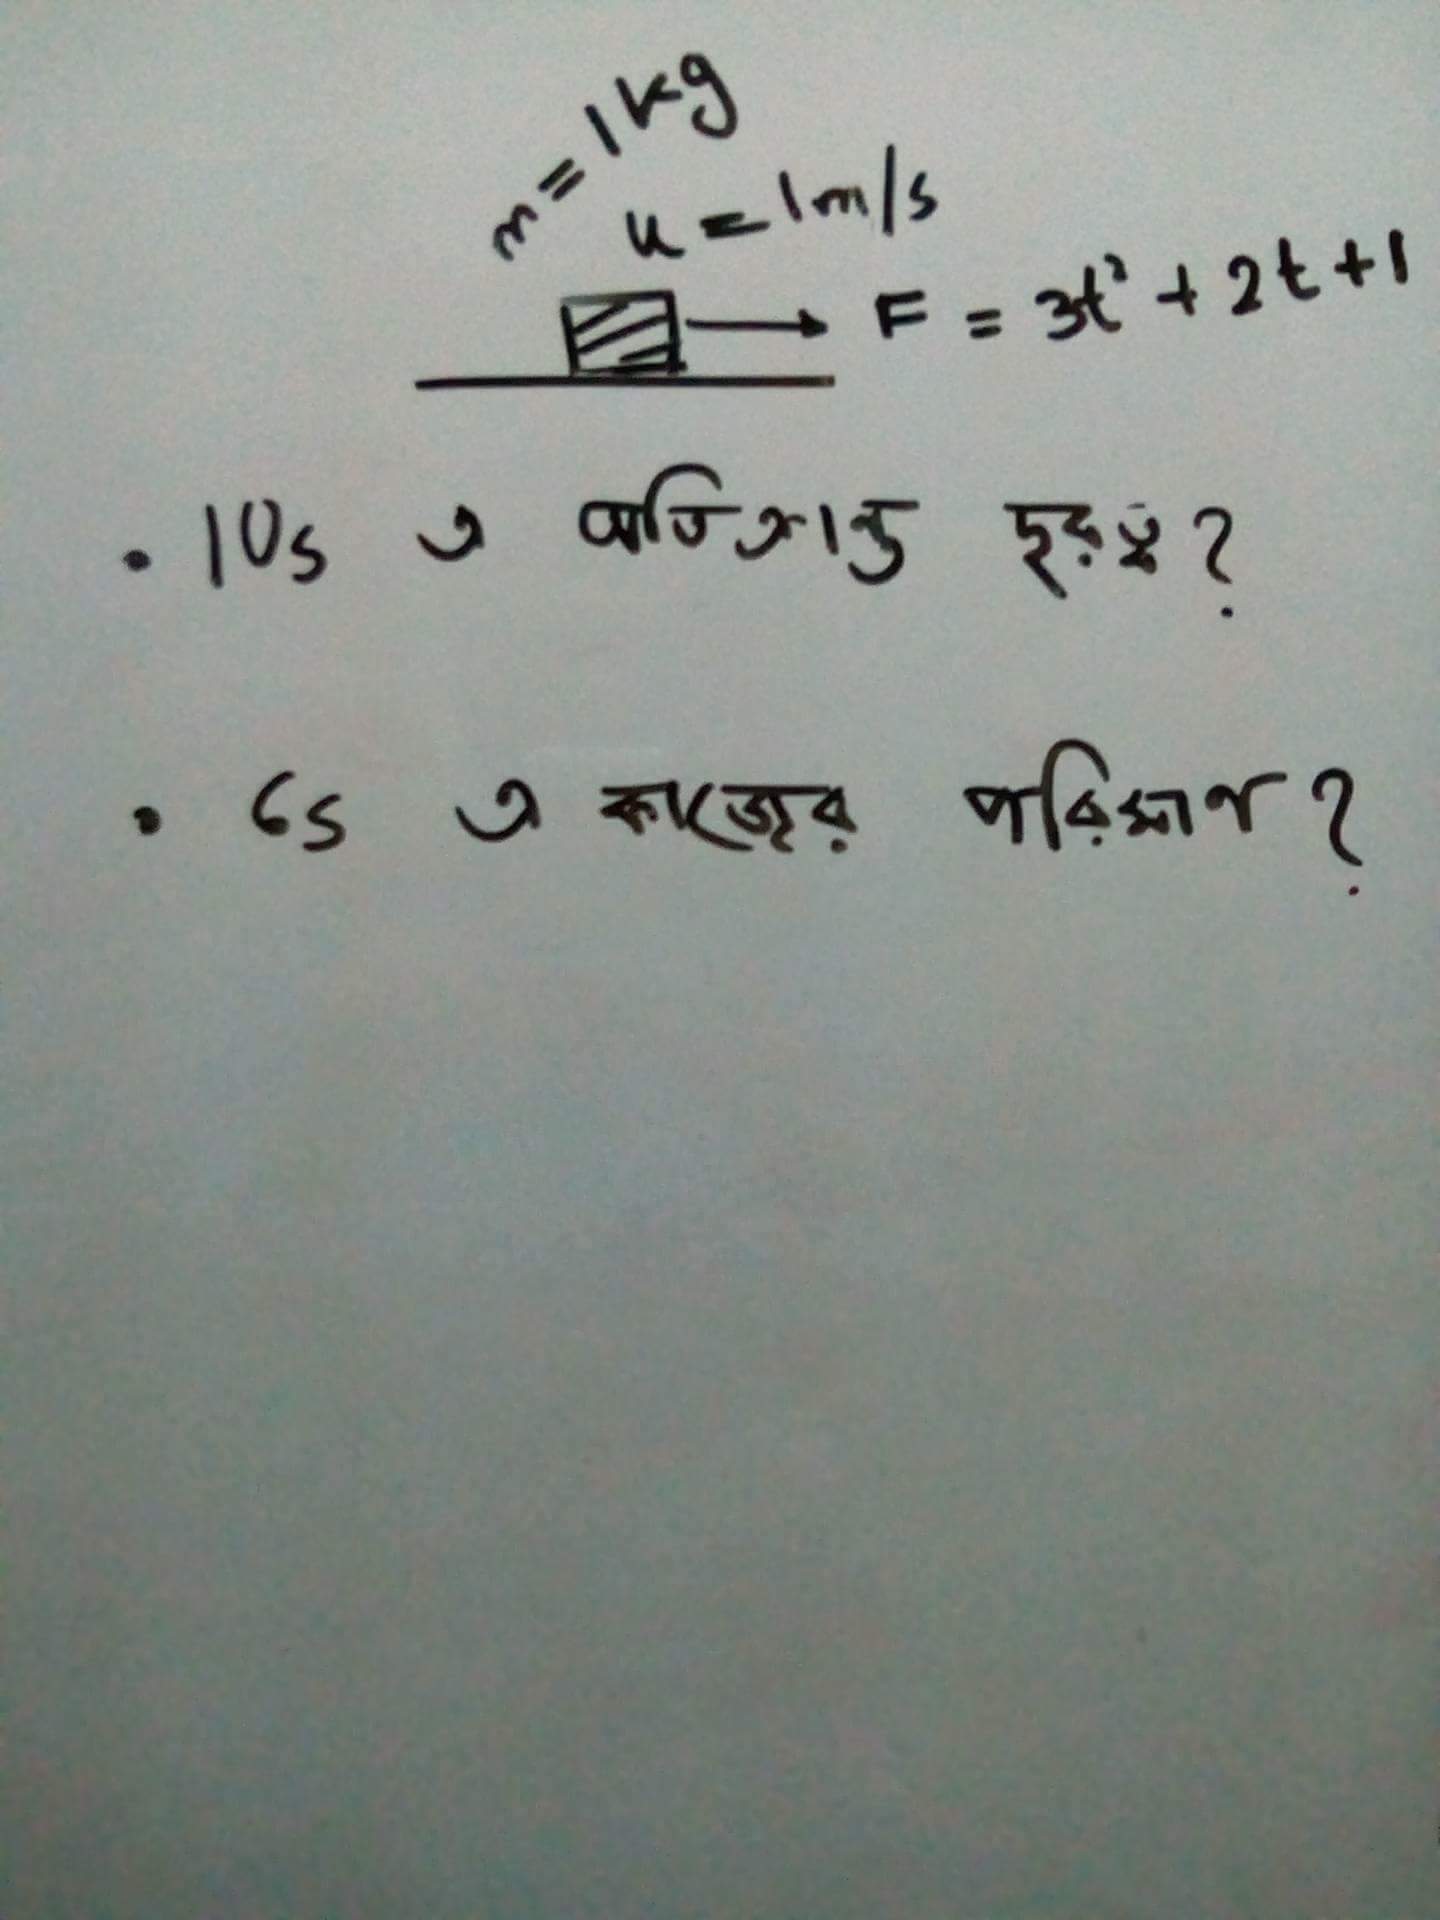 m = 1kg
u = 1m/s
F = 3t² + 2t + 1
• 10s এ অতিক্রান্ত দূরত্ব?
• 6s এ কাজের পরিমাণ?